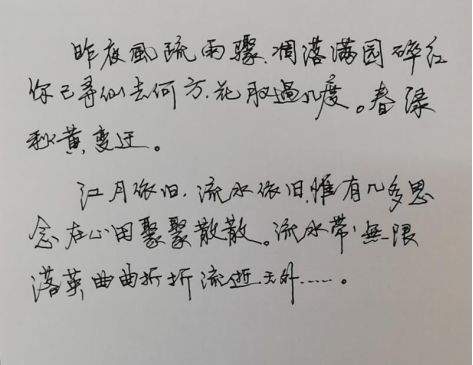 昨夜風疏雨驟,凋落满园碎红
你已寻仙去何方.花取過几度。春绿
秋黄,变迁。
江月依旧.流水依旧,惟有几多思
念在心田聚聚散散。流水带無限
落英曲曲折折流逝天外……。